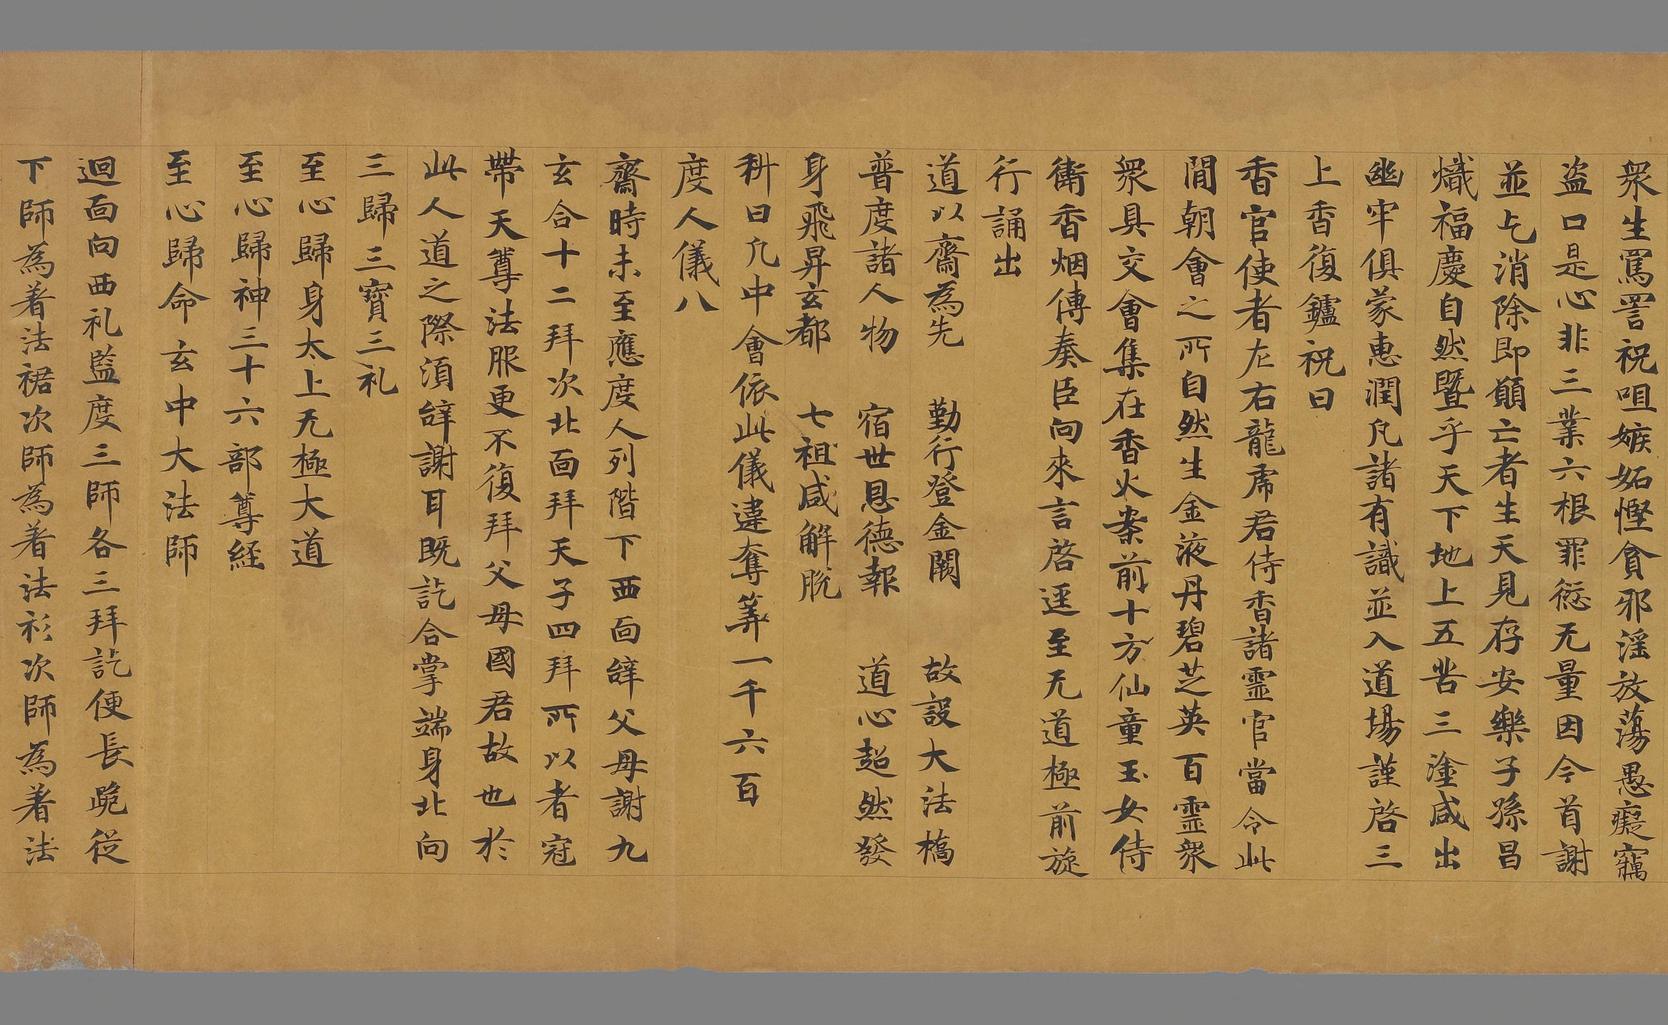 衆生罵詈祝咀嫉妬慳貪邪淫放蕩愚癡竊
盗口是心非三業六根罪愆无量因今首謝
並乞消除即願亡者生天見存安樂子孫昌
熾福慶自然暨乎天下地上五苦三塗咸出
幽牢俱蒙惠潤凡諸有識並入道場謹啓三
上香復鑪祝曰
香官使者左右龍虎君侍香諸靈官當令此
間朝會之所自然生金液丹碧芝英百靈衆
衆具交會集在香火案前十方仙童玉女侍
衛香烟傳奏臣向來言啓逕至无道極前旋
行誦出
道以齋為先　勤行登金闕　故設大法橋
普度諸人物　宿世恩德報　道心超然發
身飛昇玄都　七祖咸解脫
科曰凡中會依此儀違奪筭一千六百
度人儀八
齋時未至應度人列階下西面辝父母謝九
玄合十二拜次北面拜天子四拜所以者冠
帶天尊法服更不復拜父母國君故也於
此人道之際須辝謝耳既訖合掌端身北向
三歸三寳三礼
至心歸身太上无極大道
至心歸神三十六部尊経
至心歸命玄中大法師
迴面向西礼監度三師各三拜訖便長跪從
下師為著法裙次師為著法衫次師為著法